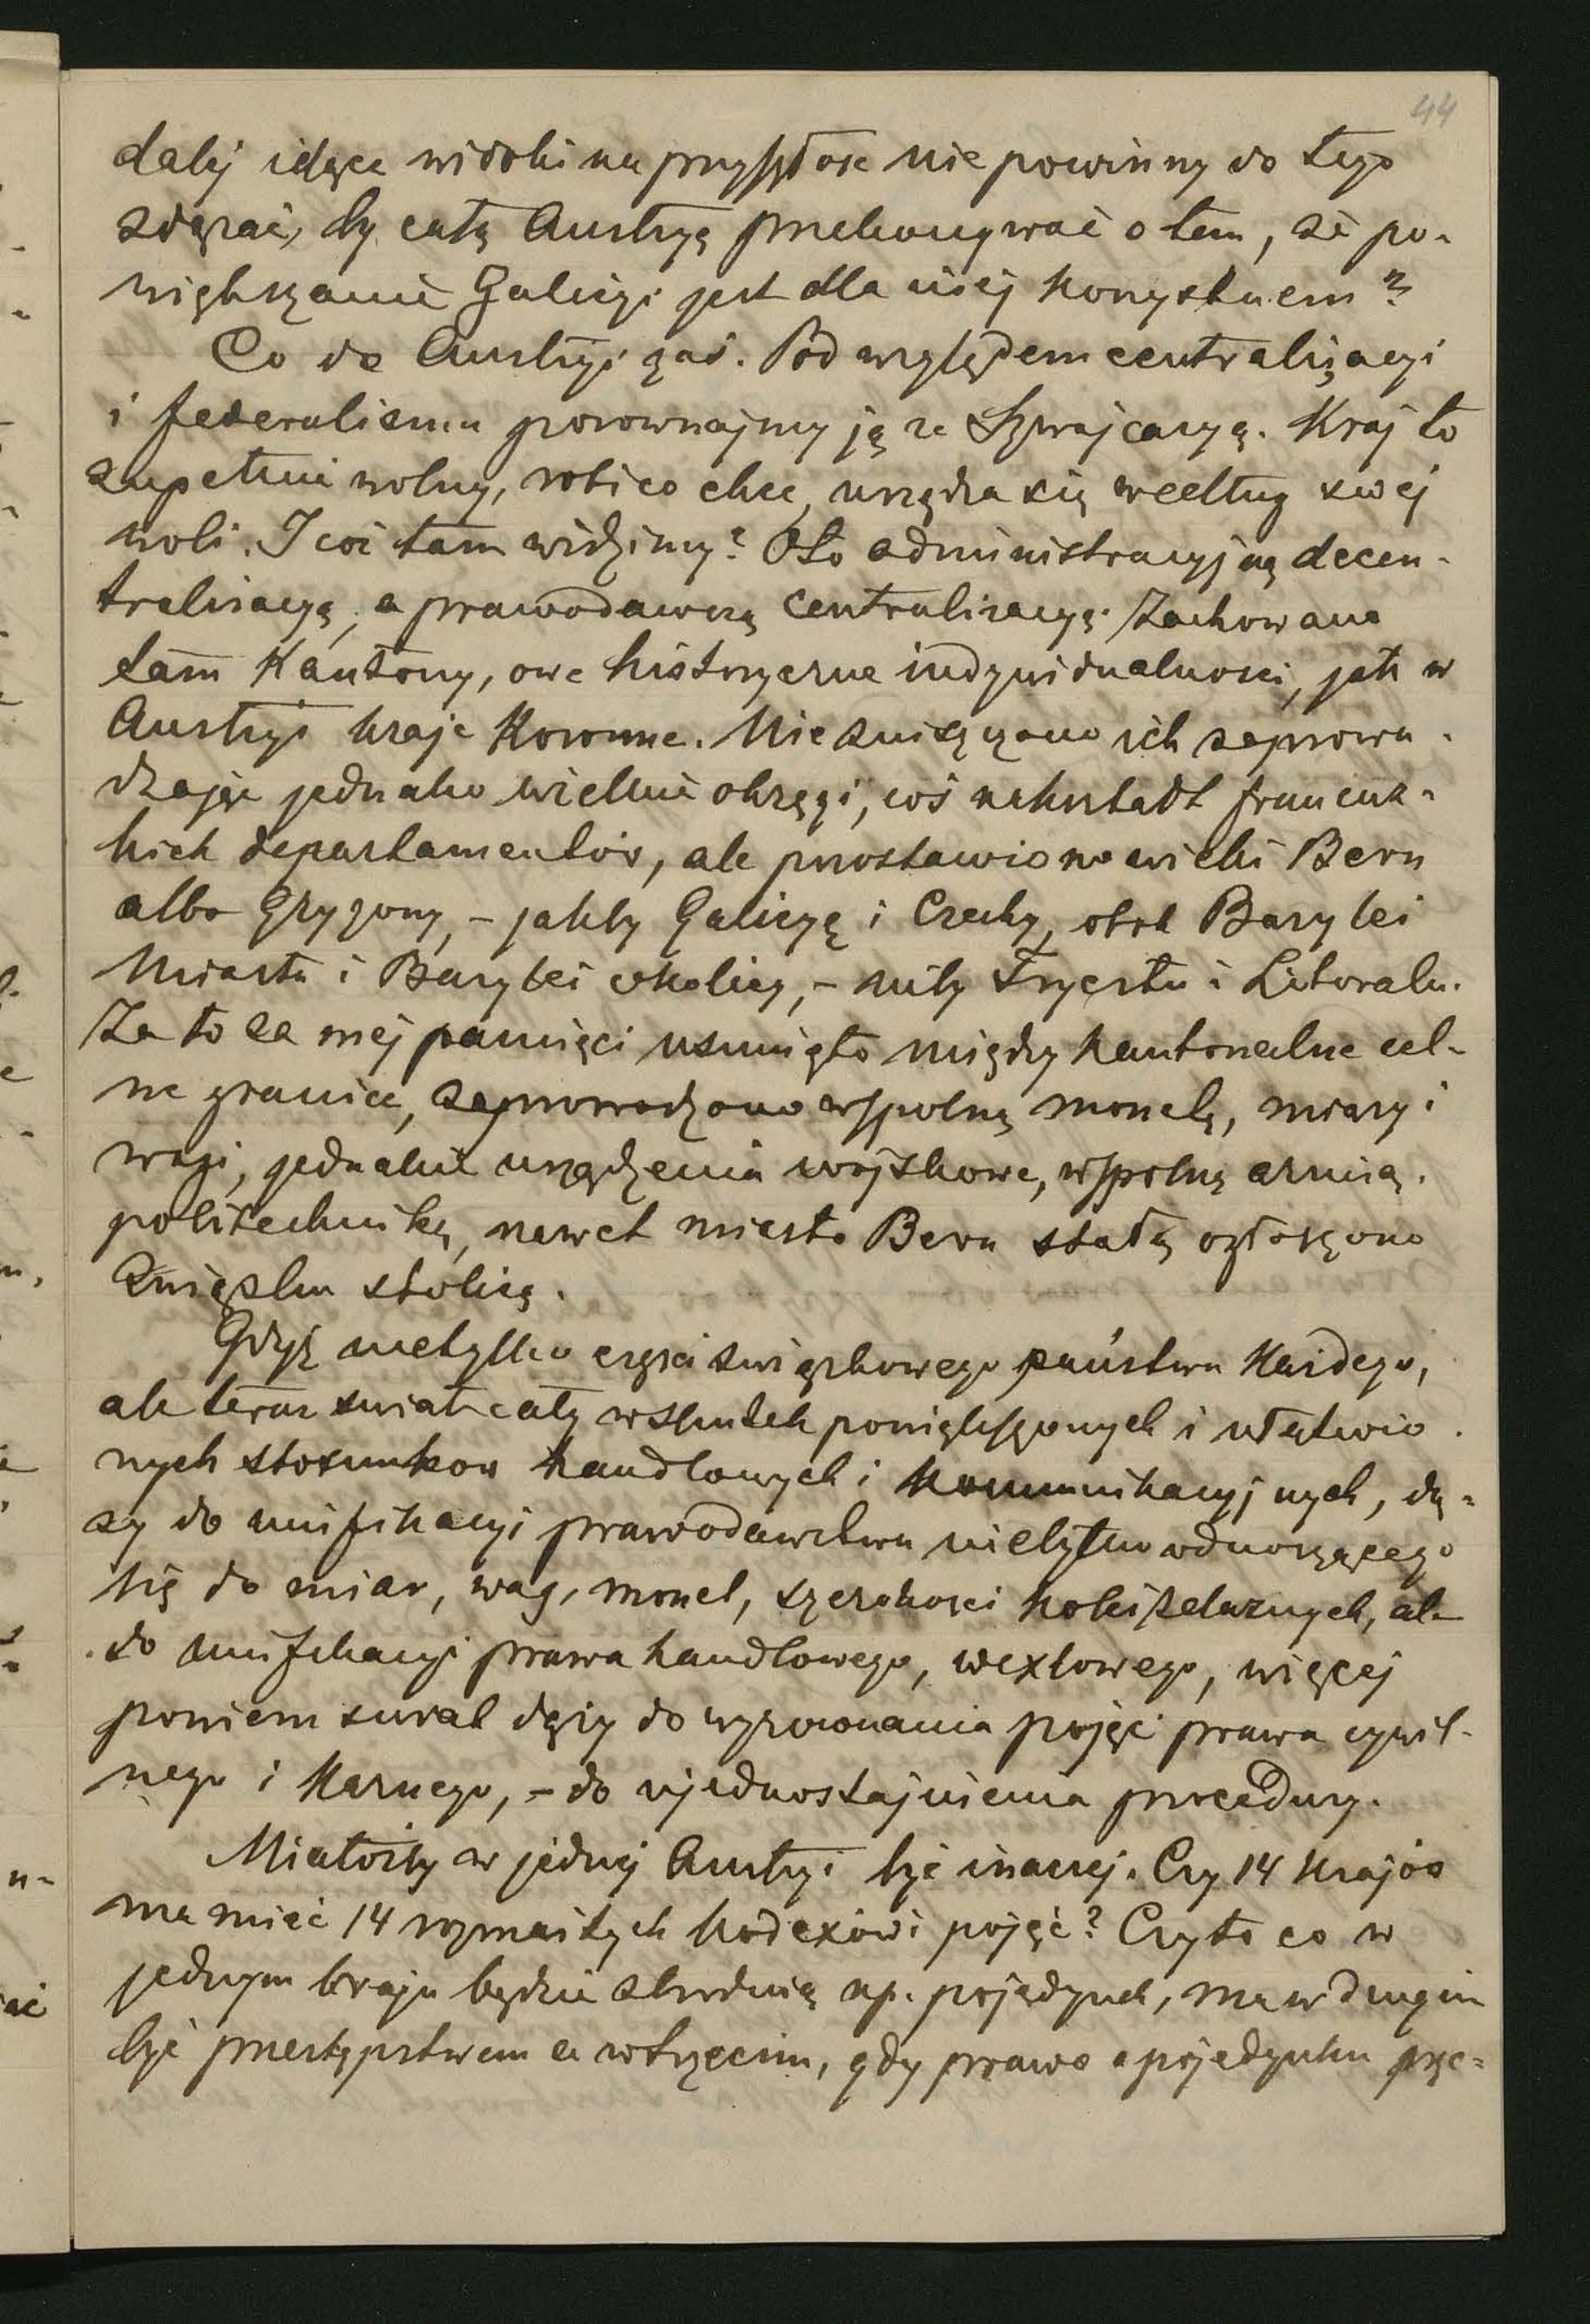 44
dalej idące widoki na przyszłość nie powinny do tego
zdążać, by całą Austryą przekonywać o tem, że po-
większanie Galicyi jest dla niej korzystnem?
Co do Austryi zaś. Pod względem centralizacyi
i federalizmu porownajmy ją ze Szwajcaryą. Kraj to
zupełnie wolny, robi co chce, urządza się według swej
woli. I coż tam widzimy? Oto administracyjną decen-
tralizacyą, a prawodawczą centralizacyą. Zachowano
tam Kantony, owe historyczne indywidualności, jak w
Austryi kraje Koronne. Nie zniszczono ich zaprowa-
dzając jednako wielkie okręgi, coś nakształt francuz-
kich departamentów, ale pozostawiono wielki Bern
albo Gryzony, - jakby Galicyę i Czechy, obok Bazylei
Miasta i Bazylei okolicy, - niby Tryestu i Litoralu.
Za to za mej pamięci usunięto między kantonalne cel-
ne granice, zaprowadzono wspolną monetę, miary i
wagi, jednakie urządzenia wojskowe, wspolną armią.
politechnikę, nawet miasto Bern stałą ogłoszono
Związku stolicą.
Gdyż nietylko części związkowego państwa Każdego,
ale teraz świat cały wskutek powiększonych i ułatwio-
nych stosunkow handlowych i kommunikacyjnych, dą-
ży do unifikacyi prawodawstwa nietylko odnoszącego
się do miar, wag, monet, szerokości kolei żelaznych, ale
do unifikacyi prawa handlowego, wexlowego, więcej
powiem świat dąży do wyrownania pojęć prawa cywil-
nego i Karnego, - do ujednostajnienia procedury.
Miałożby w jednej Austryi być inaczej. Czy 14 Krajów
ma mieć 14 rozmaitych kodexów i pojęć? Czy to co w
jednym kraju będzie zbrodnią np. pojedynek, ma w drugim
być przestępstwem a w trzecim, gdy prawo o pojedynku prze-